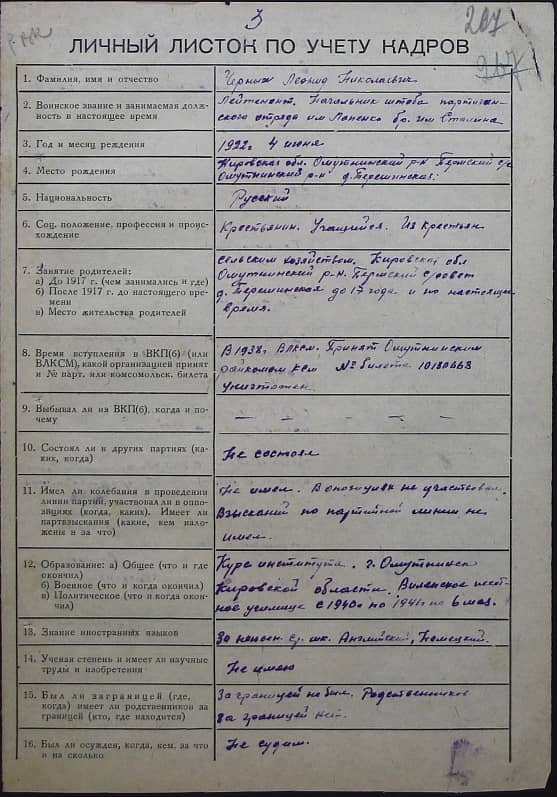 3
207
ЛИЧНЫЙ ЛИСТОК ПО УЧЕТУ КАДРОВ
1. Фамилия, имя и отчество
Черных Леонид Николаевич
2. Воинское звание и занимаемая долж-
ность в настоящее время
Лейтенант. Начальник штаба партизан-
ского отряда им Лопенко бр. им Сталина
3. Год и месяц рождения
1922г 4 июня
4. Место рождения
Кировская обл. Омутнинский р-н Пермский с/с
Омутнинский р-н д. Перешинская.
5. Национальность
Русский
6. Соц. положение, профессия и проис-
хождение
Крестьянин. Учащийся. Из крестьян
7. Занятие родителей:
а) До 1917 г. (чем занимались и где)
б) После 1917 г. до настоящего вре-
мени
в) Место жительства родителей
сельским хозяйством. Кировская обл
Омутнинский р-н. Пермский с/совет
д. Перешинская до 17 года и по настоящее
время.
8. Время вступления в ВКП(б) (или
ВЛКСМ), какой организацией принят
и № парт. или комсомольск. билета
В 1938г ВЛКСМ. Принят Омутнинским
райкомом КСМ № билета 10180668
уничтожен.
9. Выбывал ли из ВКП(б), когда и по-
чему
— — — —
10. Состоял ли в других партиях (ка-
ких, когда)
Не состоял
11. Имел ли колебания в проведении
линии партии, участвовал ли в оппо-
зициях (когда, каких). Имеет ли
партвзыскания (какие, кем нало-
жены и за что)
Не имел. В опозициях не участвовал.
Взысканий по партийной линии не
имел.
12. Образование: а) Общее (что и где
окончил)
б) Военное (что и когда окончил)
в) Политическое (что и когда окон-
чил)
Курс института. г. Омутнинск
Кировской области. Виленское пехот-
ное училище с 1940г по 1941г по 6 мая.
13. Знание иностранных языков
За ср. шк. Английский, Немецкий.
14. Ученая степень и имеет ли научные
труды и изобретения
Не имею
15. Был ли заграницей (где,
когда) имеет ли родственников за
границей (кто, где находится)
За границей не был. Родственников
за границей нет.
16. Был ли осужден, когда, кем, за что
и на сколько
Не судим.